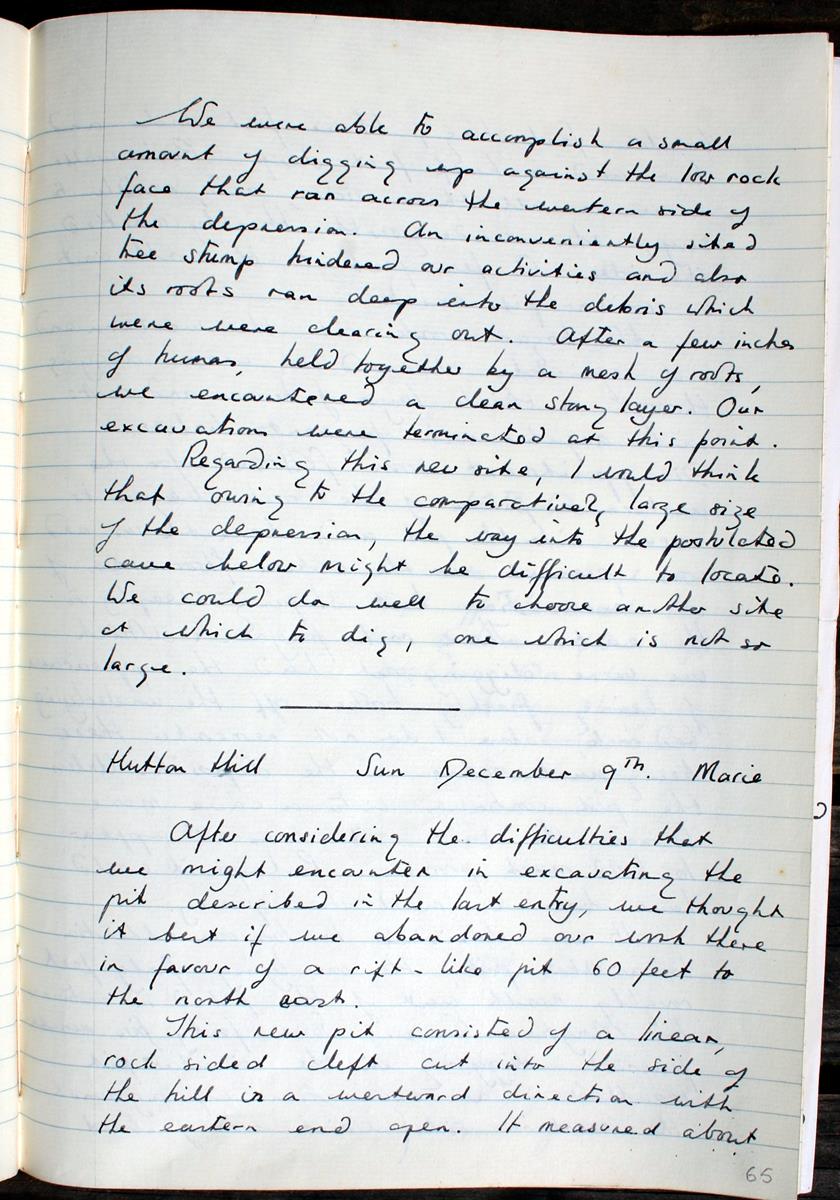 We were able to accomplish a small
amount of digging up against the low rock
face that ran across the western side of
the depression. An inconveniently sited
tree stump hindered our activities and also
its roots ran deep into the debris which
were were clearing out. After a few inches
of humus, held together by a mesh of roots,
we encountered a clean stony layer. Our
excavations were terminated at this point.
Regarding this new site, I would think
that owing to the comparatively large size
of the depression, the way into the postulated
cave below might be difficult to locate.
We could do well to choose another site
at which to dig, one which is not so
large.
Hutton Hill Sun December 9th. Marie
After considering the difficulties that
we might encounter in excavating the
pit described in the last entry, we thought
it best if we abandoned our work there
in favour of a rift-like pit 60 feet to
the north east.
This new pit consisted of a linear,
rock sided cleft cut into the side of
the hill in a westward direction with
the eastern end open. It measured about
65